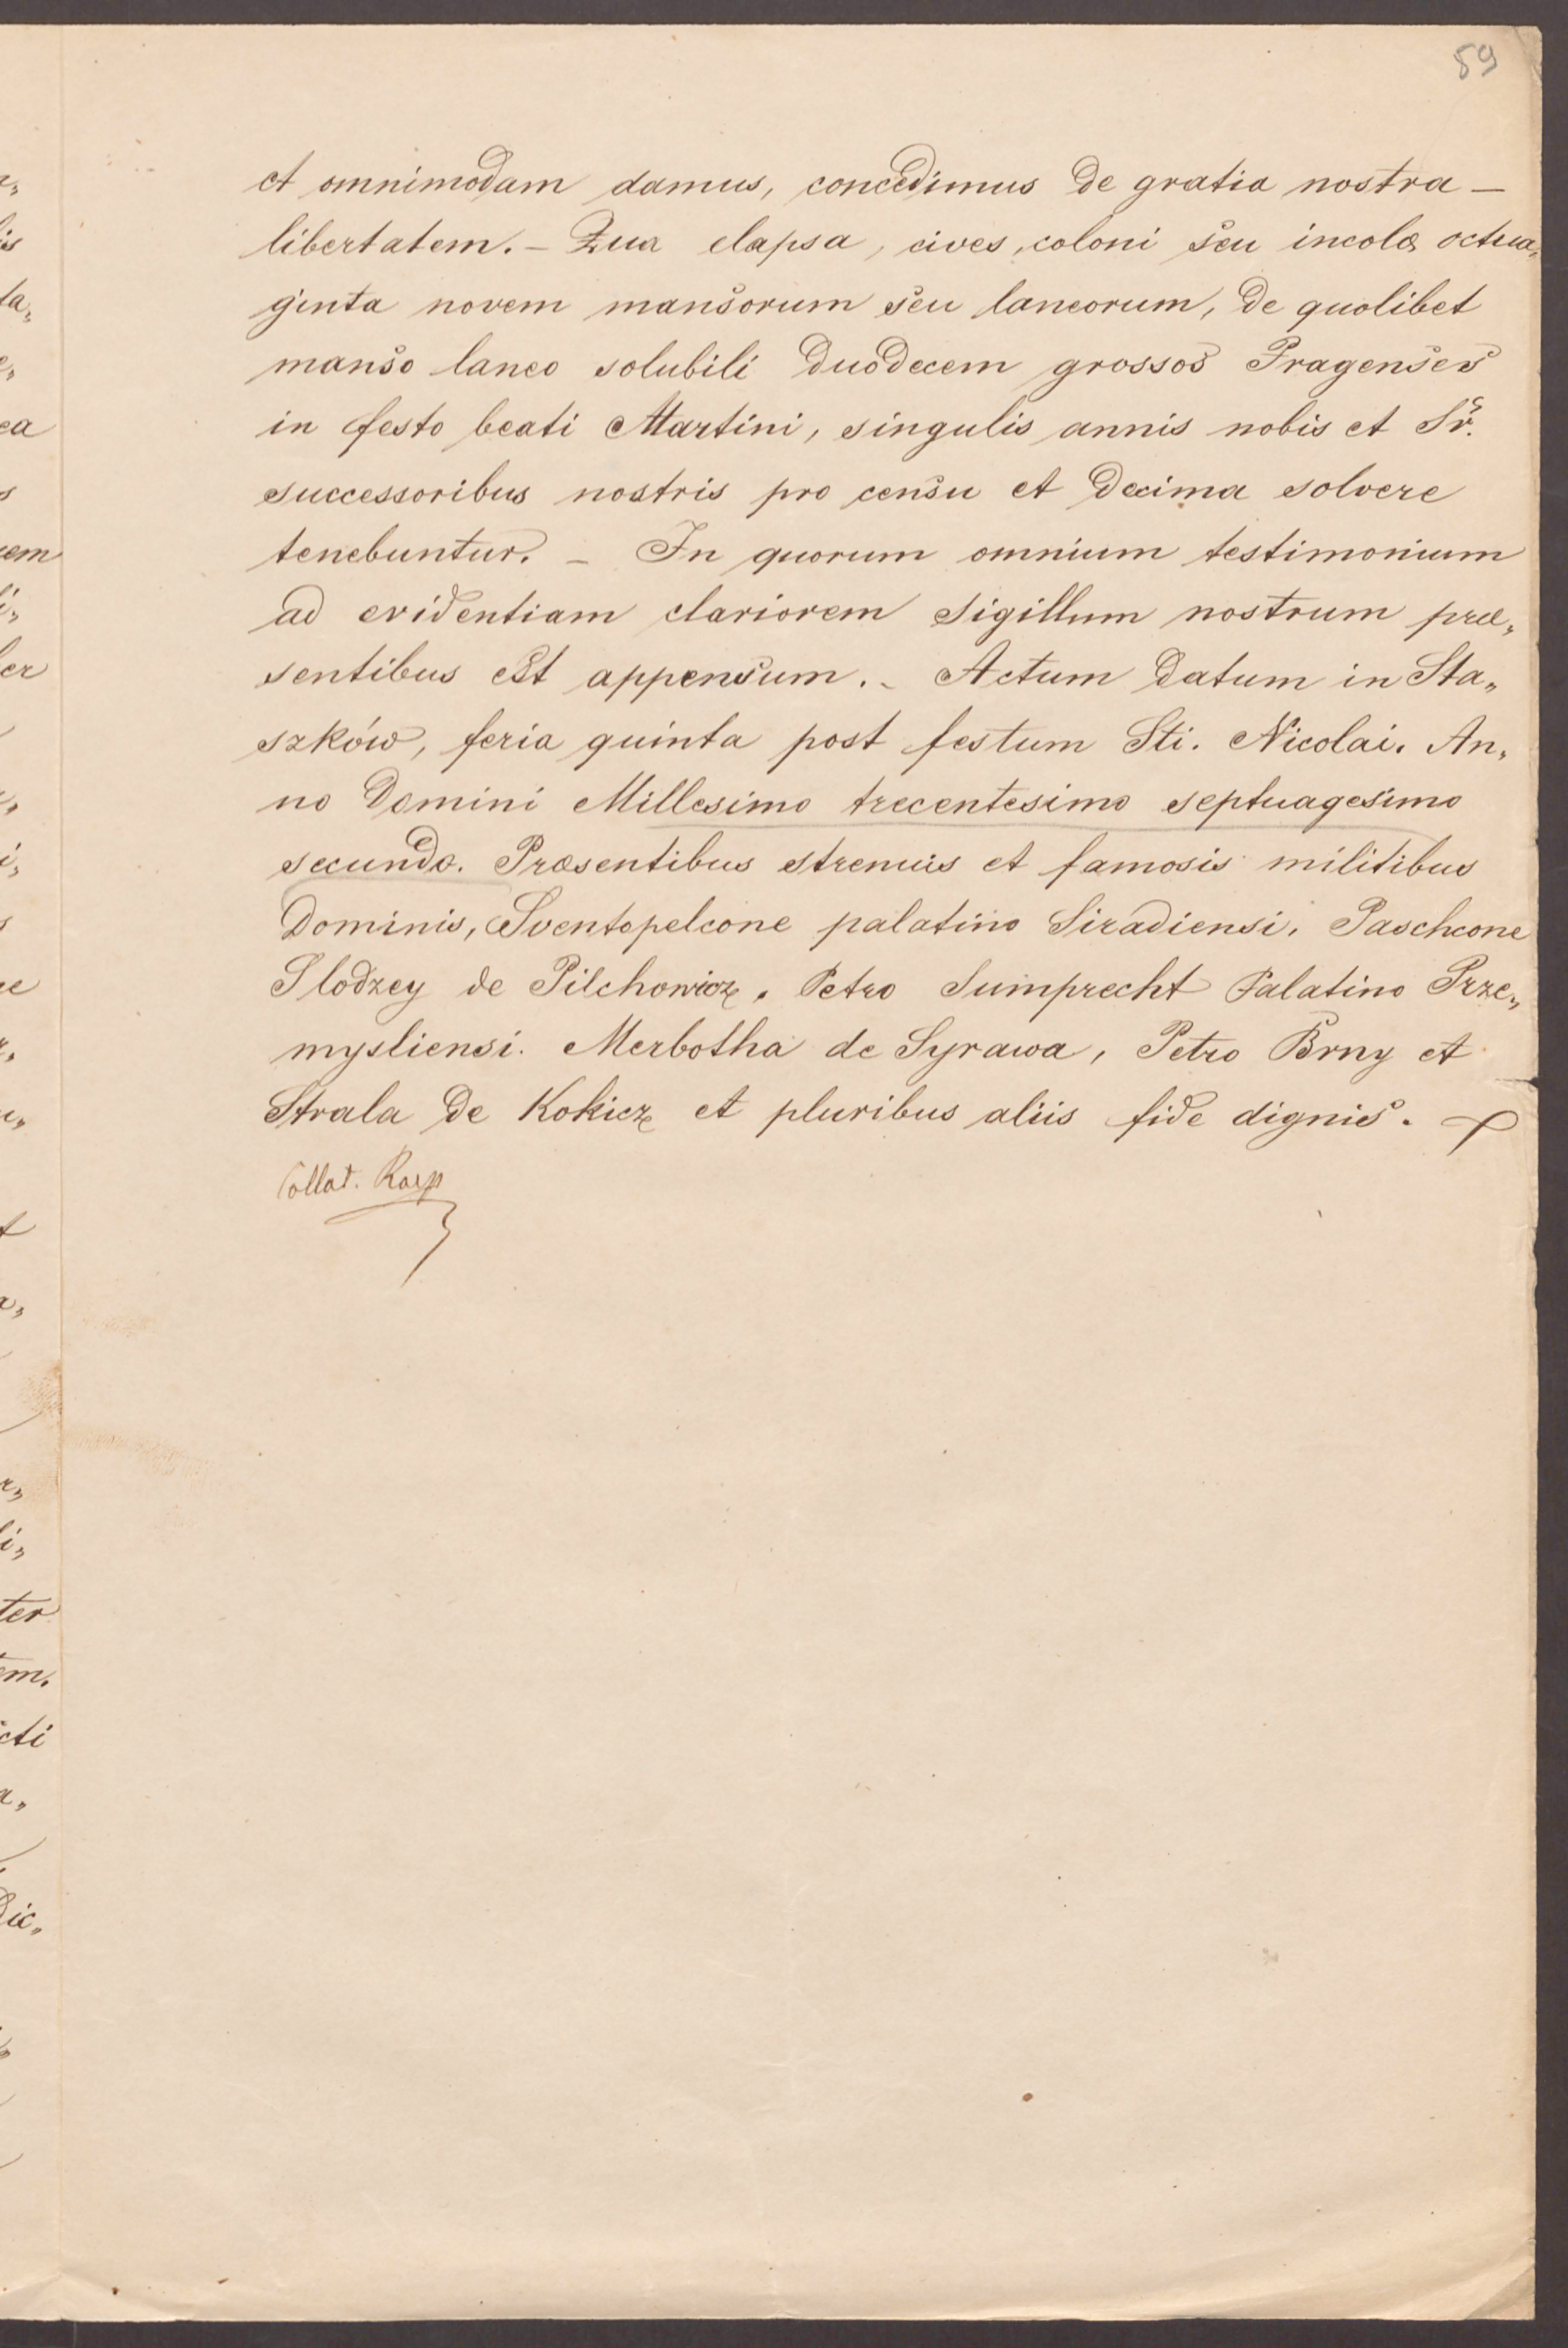 59
et omnimodam damus, concedimus de gratia nostra —
libertatem. – Qua elapsa, cives, coloni seu incolæ octua„
ginta novem mansorum seu laneorum, de quolibet
manso laneo solubili duodecem grossos Pragenses
in festo beati Martini, singulis annis nobis et
successoribus nostris pro censu et decima solvere
tenebuntur. – In quorum omnium testimonium
ad evidentiam clariorem sigillum nostrum præ„
sentibus est appensum. – Actum datum in Sta„
szków, feria quinta post festum Sti. Nicolai. An„
no Domini Millesimo trecentesimo septuagesimo
secundo. Præsentibus strenuis et famosis militibus
Dominis, Sventopelcone palatino Siradiensi, Paschcone
Slodzey de Pilchowicz, Petro Sumprecht Palatino Prze„
mysliensi. Merbotha de Syrawa, Petro Brny et
Strala de Kokicz et pluribus aliis fide dignis.
Collat.